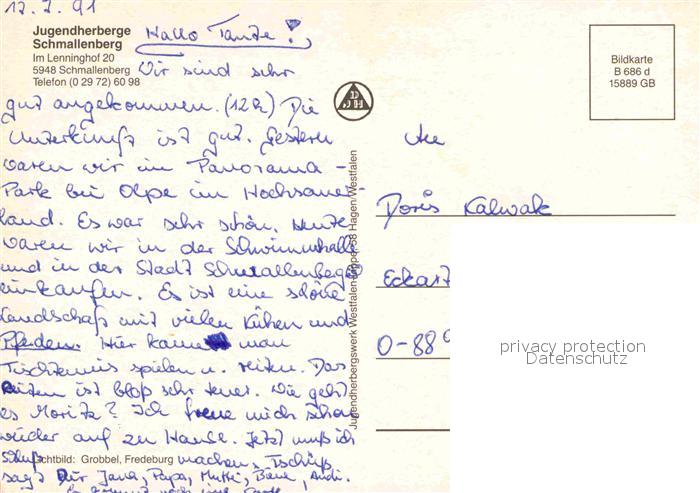 12.7.91
Jugendherberge
Schmallenberg
Im Lenninghof 20
5948 Schmallenberg
Telefon (0 29 72) 60 98
Hallo Tante!,
Wir sind sehr
gut angekommen. (12h) Die
Unterkunft ist gut. Gestern
waren wir im Panorama-
Park bei Olpe im Hochsauer-
land. Es war sehr schön. Heute
waren wir in der Schwimmhalle
und in der Stadt Schmallenberg
einkaufen. Es ist eine schöne
Landschaft mit vielen Kühen und
Pferden. Hier kann man
Tischtennis spielen u. reiten. Das
Reiten ist bloß sehr teuer. Wie geht
es Moritz? Ich freue mich schon
wieder auf zu Hause. Jetzt muß ich
Schluß machen. Tschüß
Lichtbild: Grobbel, Fredeburg
sagt Dir Jana, Papa, Mutti, Andi.
Jugendherbergswerk Westfalen-Lippe, 58 Hagen/Westfalen
DJH
Bildkarte
B 686 d
15889 GB
An
Doris Kalwak
Eckart
O-88
privacy protection
Datenschutz